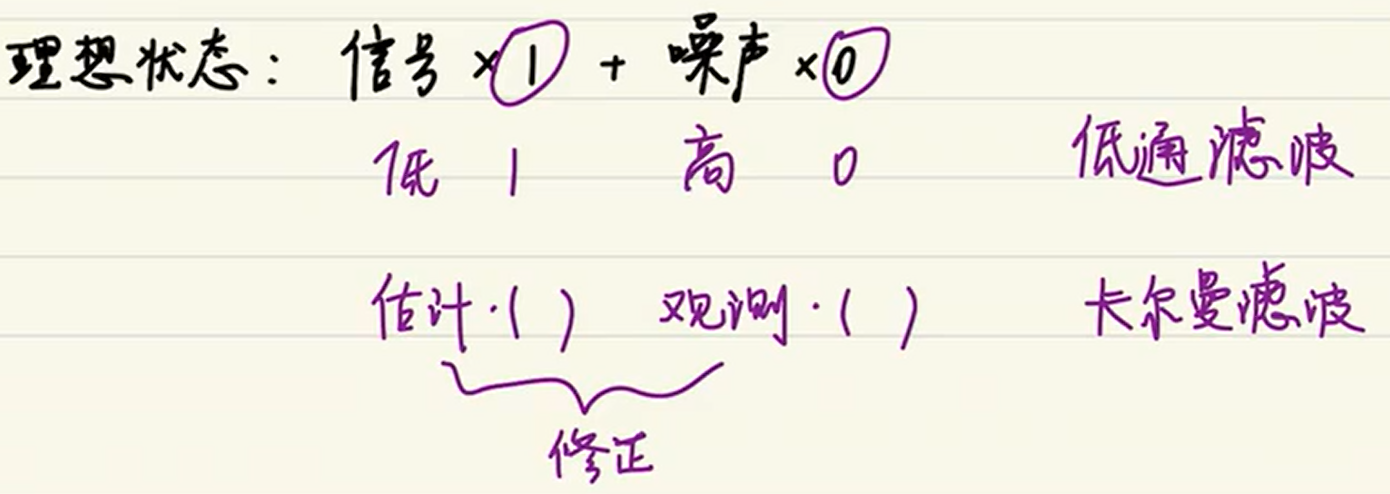 理想状态: 信号 ×1 + 噪声 ×0
低 1 高 0 低通滤波
估计·( ) 观测·( ) 卡尔曼滤波
修正